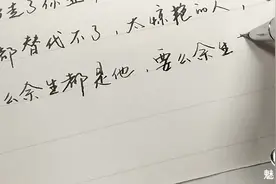 走了你
都替代不了，太惊艳的人，
么余生都是他，要么余生
魅